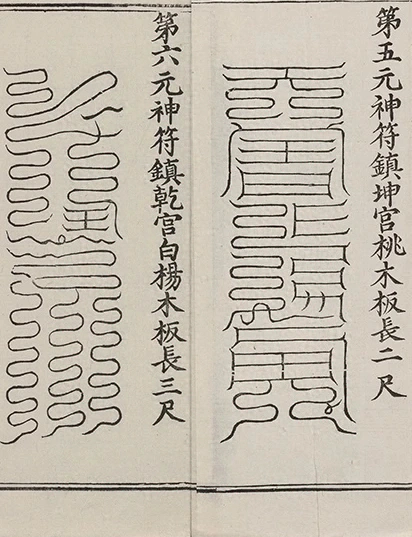 第五元神符鎮坤宫桃木板長二尺
第六元神符鎮乾宫白楊木板長三尺